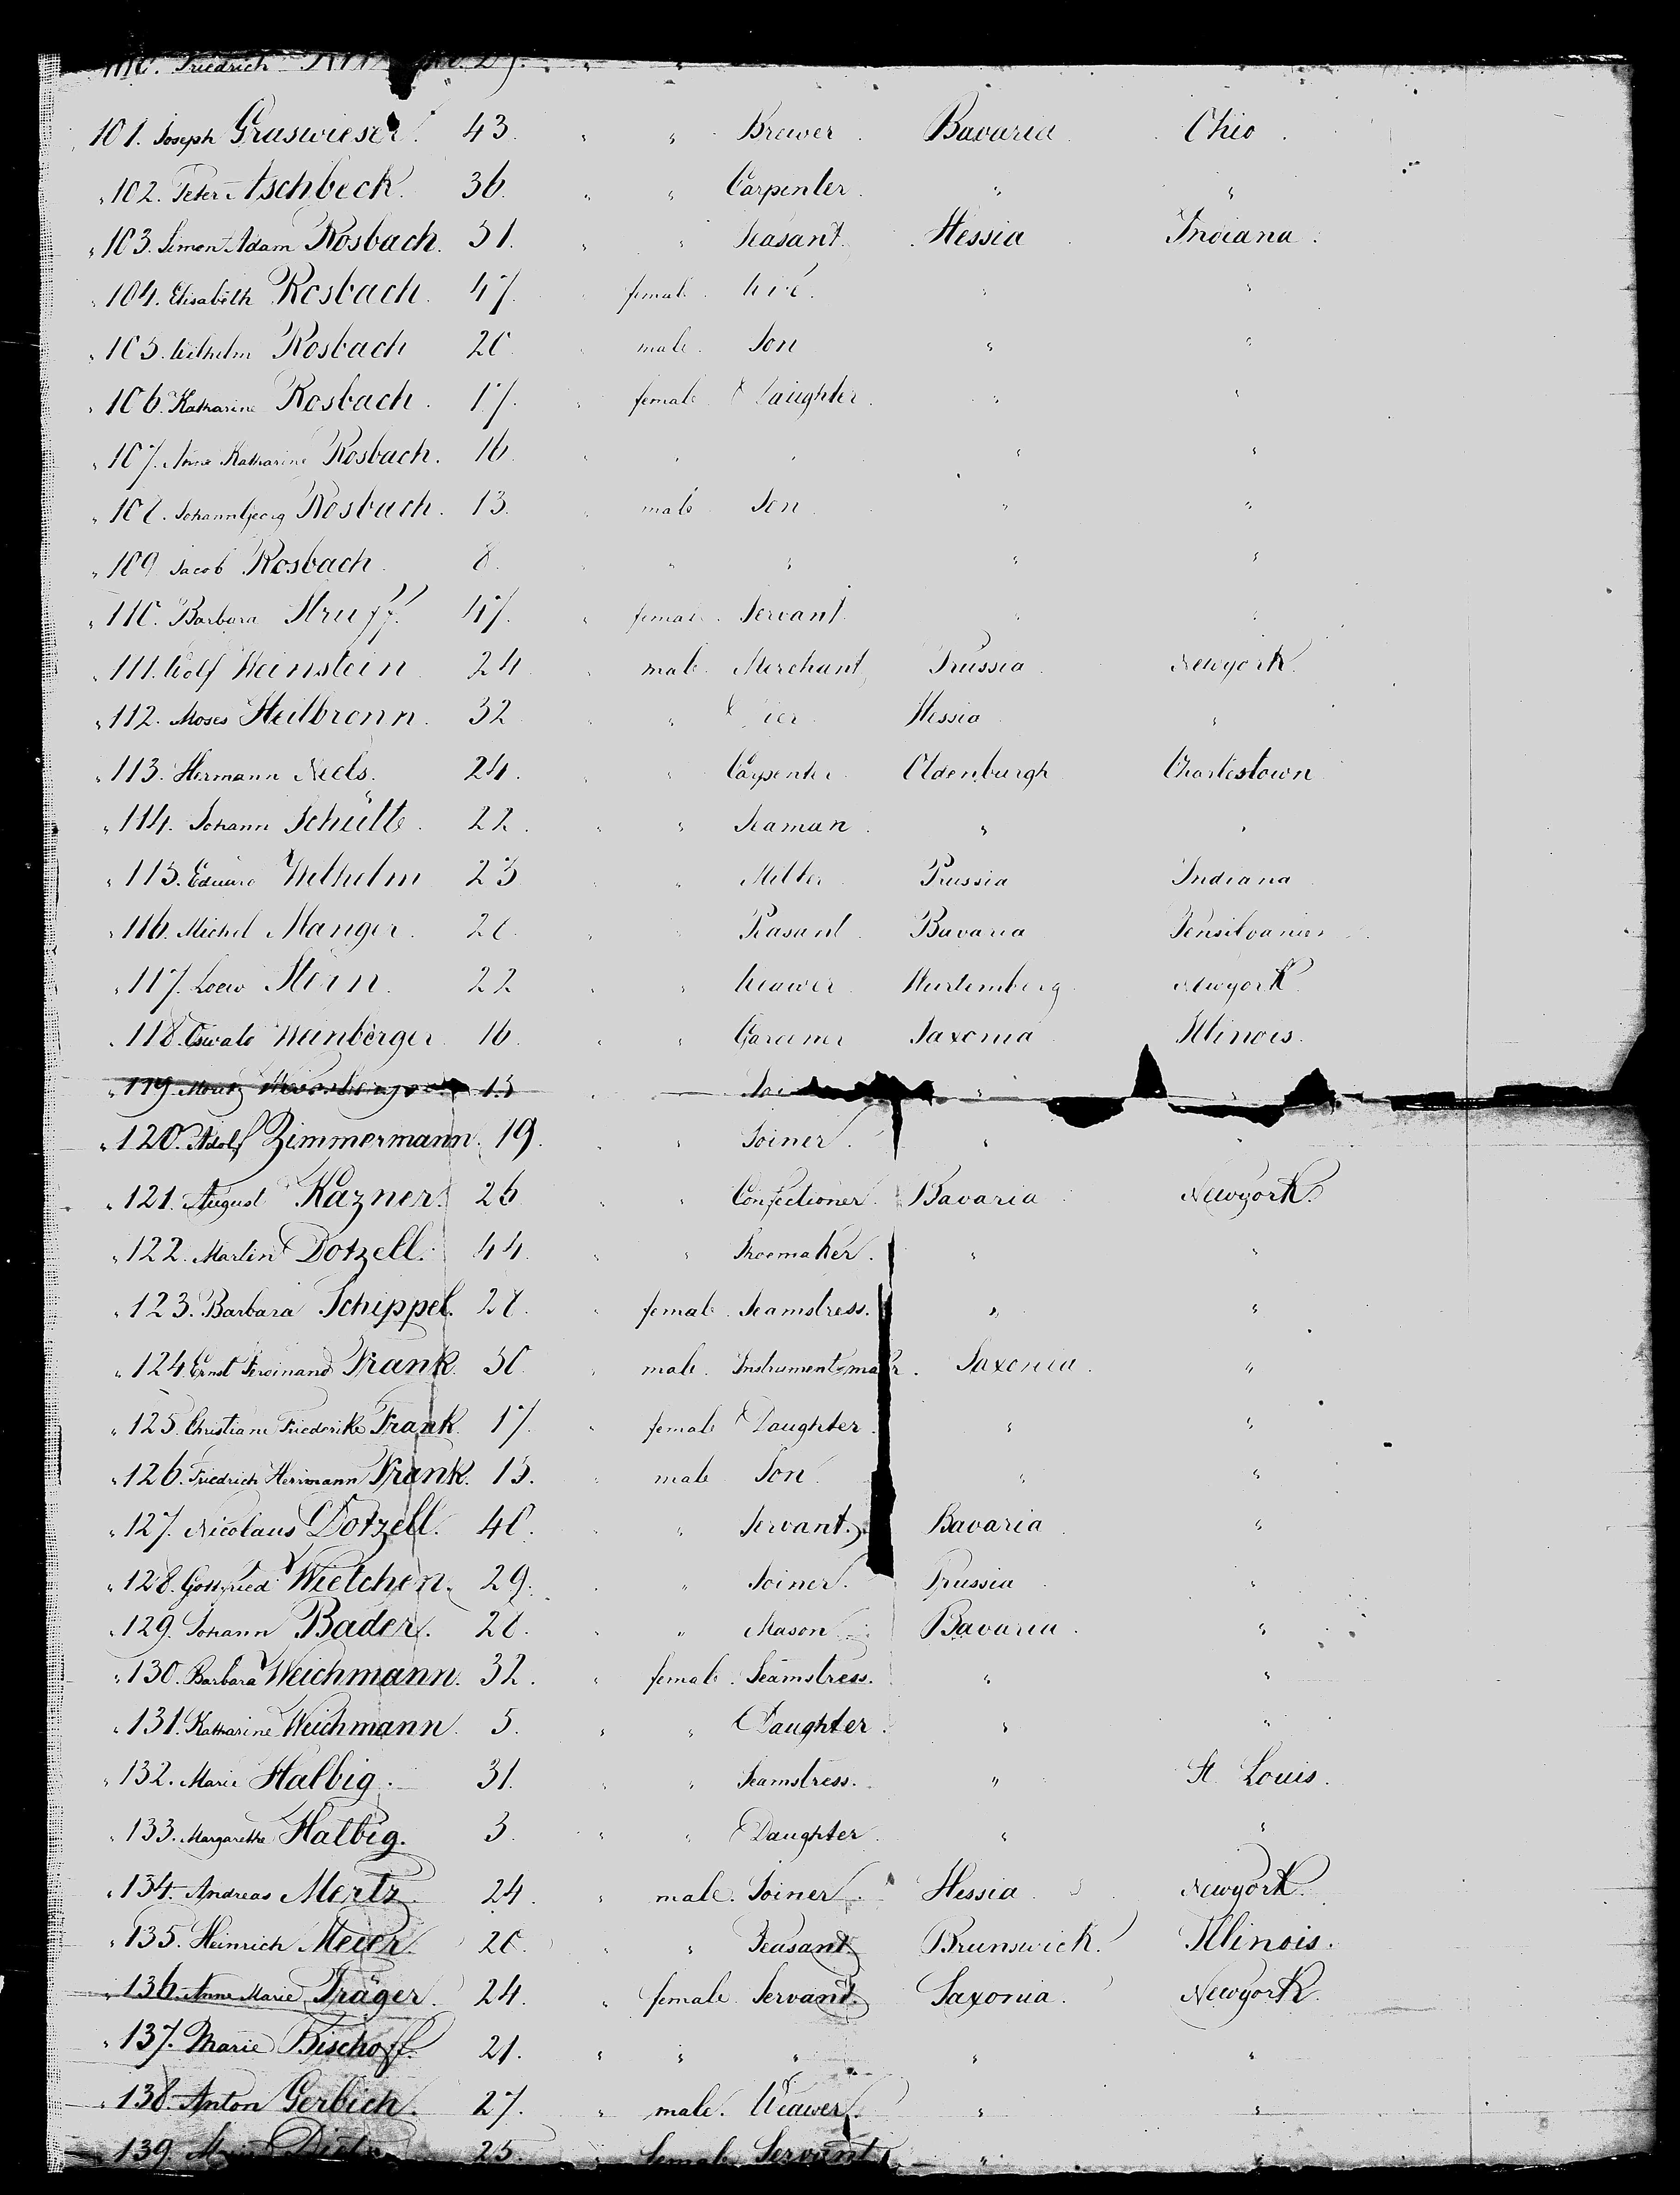 Friedrich
101. Joseph Graswieser. 43. " " Brewer. Bavaria. Ohio.
" 102. Peter Aschbeck. 36. " " Carpenter. " "
" 103. Simon Adam Rosbach. 31. " " Peasant. Hessia. Indiana.
" 104. Elisabeth Rosbach. 47. " female. " "
" 105. Wilhelm Rosbach 20. " male. Son " "
" 106. Katharine Rosbach. 17. " female Daughter. " "
" 107. Anna Katharine Rosbach. 16. " " " " "
" 108. Johann Georg Rosbach. 13. " male Son " "
" 109. Jacob Rosbach. 8. " " " " "
" 110. Barbara Struff. 47. " female. Servant. " "
" 111. Wolf Weinstein 24 " male. Merchant Prussia. Newyork.
" 112. Moses Heilbronn. 32 " " Hessia "
" 113. Hermann Niels. 24. " " Carpenter. Oldenburgh Charlestown
" 114. Johann Schülte. 22. " " Seaman. " "
" 115. Eduard Wilhelm 23 " " Miller Prussia Indiana
" 116. Michel Manger. 28. " " Peasant. Bavaria Pensilvanien
" 117. Loew Stein. 22 " " Weawer. Wurtemberg. Newyork.
" 118. Oswald Weinberger. 16. " " Gardener Saxonia Illinois.
" 119. Moritz 13 " "
" 120. Adolf Zimmermann. 19. " " Joiner. " "
" 121. August Kazner. 26. " " Confectioner. Bavaria. Newyork.
" 122. Martin Dotzell. 44. " " Shoemaker. " "
" 123. Barbara Schippel. 28. " female. Seamstress. " "
" 124. Ernst Ferdinand Frank. 30. " male. Saxonia. "
" 125. Christiane Friederike Frank 17. " female Daughter. " "
" 126. Friedrich Hermann Frank. 13. " male Son. " "
" 127. Nicolaus Dotzell. 40. " " Servant. Bavaria. "
" 128. Gottfried Wietchen. 29. " " Joiner. Prussia. "
" 129. Johann Bader. 28. " " Mason Bavaria. "
" 130. Barbara Weichmann. 32. " female. Seamstress. " "
" 131. Katharine Weichmann. 5. " " Daughter. " "
" 132. Marie Halbig. 31. " " Seamstress. " St. Louis.
" 133. Margarethe Halbig. 3. " " Daughter. " "
" 134. Andreas Mertz. 24. " male. Joiner. Hessia. Newyork.
" 135. Heinrich Meier. 20. " " Peasant. Brunswick. Illinois.
" 136. Anne Marie Träger. 24. " female. Servant. Saxonia. Newyork.
" 137. Marie Bischoff. 21. " " " " "
" 138. Anton Gerbich. 27. " male. Weawer. " "
" 139. 25. " female Servant. " "